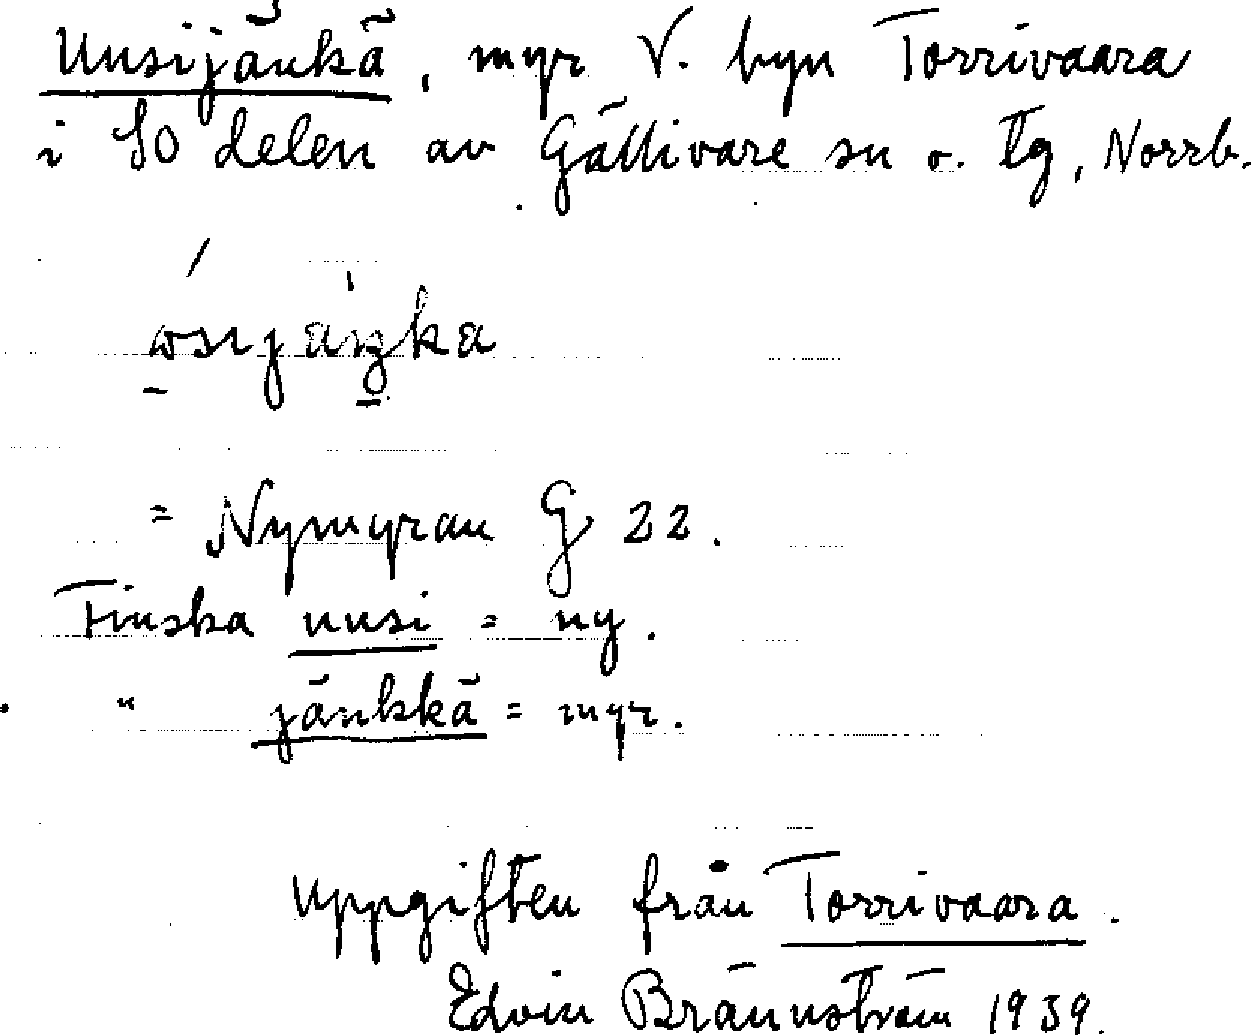 Uusijänkä, myr V. byn Torrivaara
i SO delen av Gällivare sn o. tg, Norrb.
= Nymyran G 22.
Finska uusi = ny.
" jänkkä = myr.
Uppgiften från Torrivaara.
Edvin Brännström 1939.